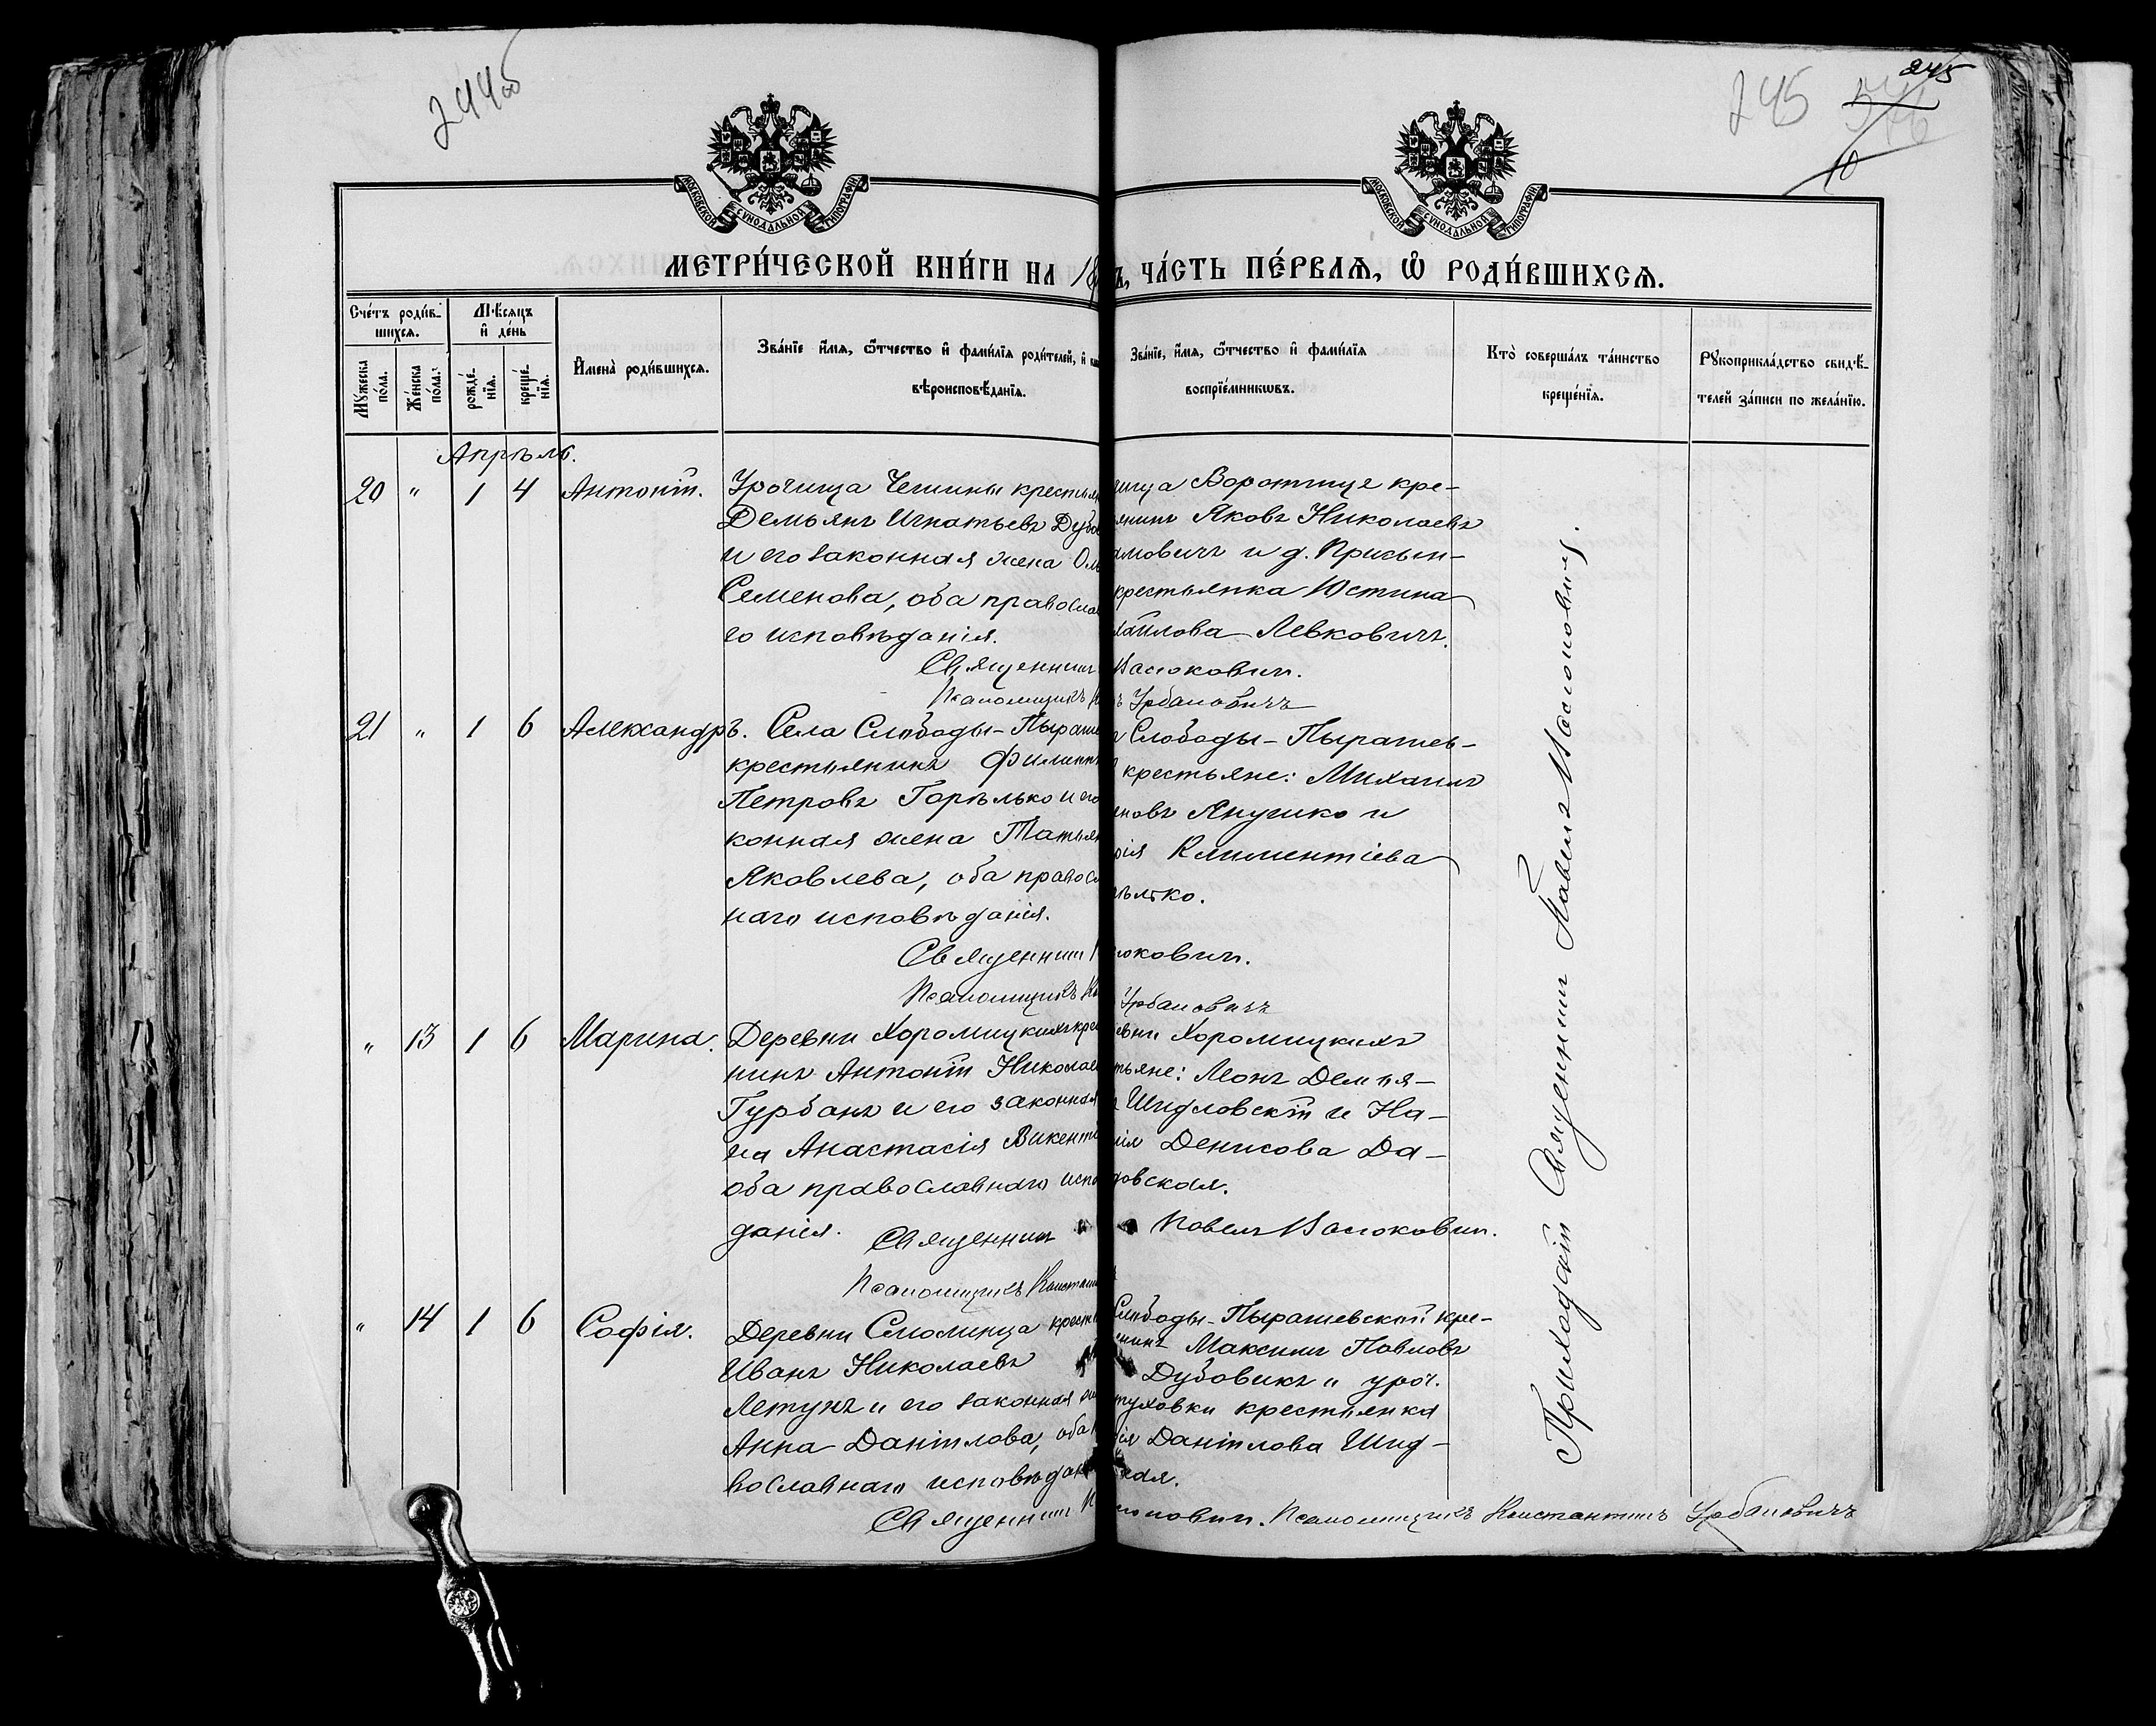 244об
245
245
10
МОСКОВСКОЙ СУНОДАЛЬНОЙ ТИПОГРАФІИ
МОСКОВСКОЙ СУНОДАЛЬНОЙ ТИПОГРАФІИ
МЕТРИ́ЧЕСКОЙ КНИ́ГИ НА 18
ЧА́СТЬ ПЕ́РВАѦ, Ѡ҆ РОДИ́ВШИХСѦ.
Сче́тъ роди́в-
шихсѧ.
Мꙋ́жеска по́ла.
Же́нска по́ла.
Мѣ́сѧцъ
и҆ де́нь
рожде́-
нїѧ.
креще́-
нїѧ.
И҆мена̀ роди́вшихсѧ.
Зва́нїе и҆́мѧ, ѻ҆́тчество и҆ фами́лїѧ роди́телей, и҆
вѣроисповѣ́данїѧ.
Зва́нїе, и҆́мѧ, ѻ҆́тчество и҆ фами́лїѧ
воспрїе́мникѡвъ.
Кто̀ соверша́лъ та́инство
креще́нїѧ.
Рꙋкоприкла́дство свидѣ́-
телей за́писи по жела́нїю.
Апрѣль.
20 " 1 4 Антоній.
Урочища Чешины крестьян
Демьянъ Игнатьевъ Дубов
и его законная жена Оль
Семенова, оба православ
го исповѣданія.
Священникъ
Псаломщикъ
чища Воротище кре-
янинъ Яковъ Николаевъ
амовичъ и д. Присын-
крестьянка Юстина
хайлова Левковичъ.
Васюковичъ.
Урбановичъ
21 " 1 6 Александръ.
Села Слободы-Пыраше
крестьянинъ Филиппъ
Петровъ Горѣлько и его
конная жена Татьян
Яковлева, оба правосл
наго исповѣданія.
Священникъ
Псаломщикъ
Слободы-Пырашев-
крестьяне: Михаилъ
еновъ Янушко и
рія Климентіева
ѣлько.
юковичъ.
Урбановичъ
" 13 1 6 Марина.
Деревни Хоромицкихъ кре
нинъ Антоній Николаев
Турбанъ и его законная
на Анастасія Викенті
оба православнаго испо
данія.
Священникъ
Псаломщикъ Констан
евни Хоромицкихъ
тьяне: Леонъ Демья-
Шидловскій и На-
лія Денисова Да-
довская.
Павелъ Васюковичъ.
" 14 1 6 Софія.
Деревни Смолинца крест
Иванъ Николаевъ
Летунъ и его законная
Анна Даніилова, оба
вославнаго исповѣдан
Священникъ
Слободы-Пырашевской кре-
нинъ Максимъ Павловъ
Дубовикъ и уроч.
туховки крестьянка
ія Даніилова Шид-
кая.
юковичъ. Псаломщикъ Константинъ Урбановичъ
Приходскій Священникъ Павелъ Васюковичъ.